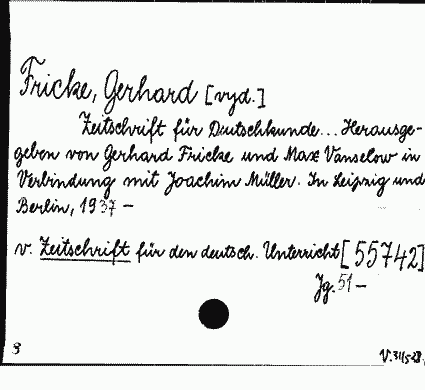 Fricke, Gerhard [vyd.]
Zeitschrift für Deutschkunde... Herausge-
geben von Gerhard Fricke und Max Vanselow in
Verbindung mit Joachim Müller. In Leipzig und
Berlin, 1937 -
v. Zeitschrift für den deutsch. Unterricht [55742]
Jg. 51 -